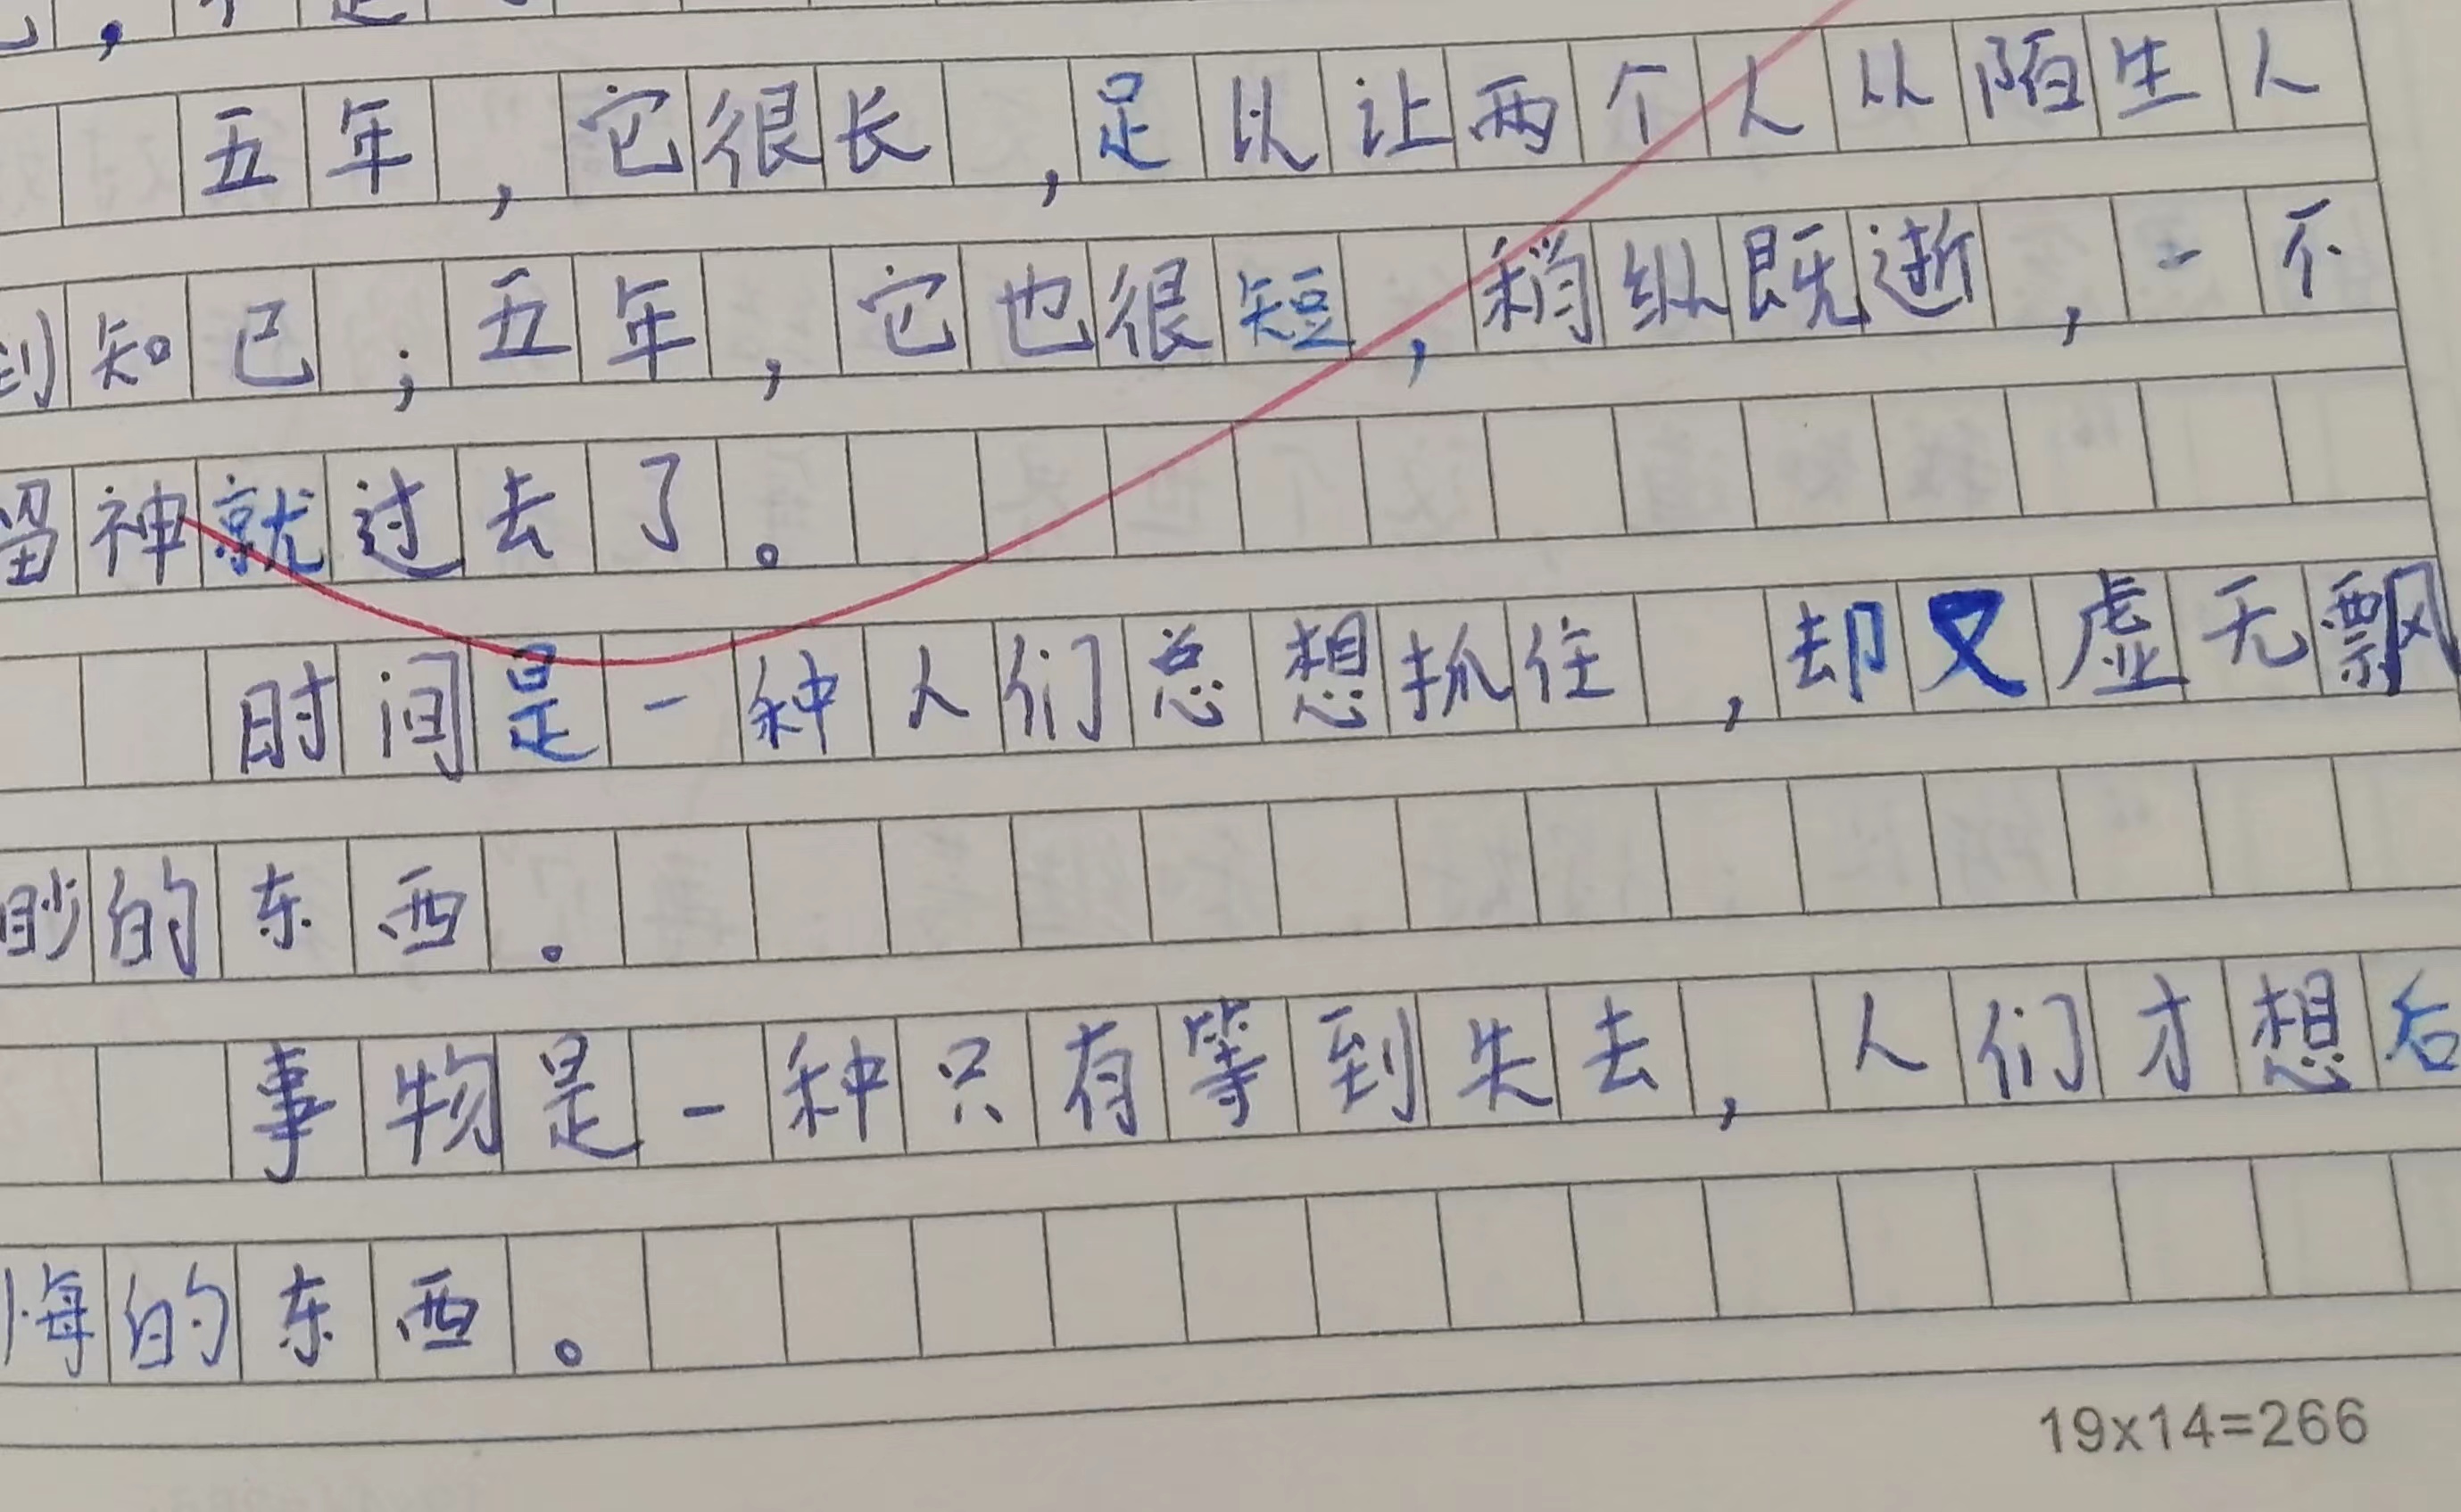 五年，它很长，足以让两个人从陌生人
到知己；五年，它也很短，稍纵既逝，一不
留神就过去了。
时间是一种人们总想抓住，却又虚无飘
眇的东西。
事物是一种只有等到失去，人们才想后
悔的东西。
19x14=266